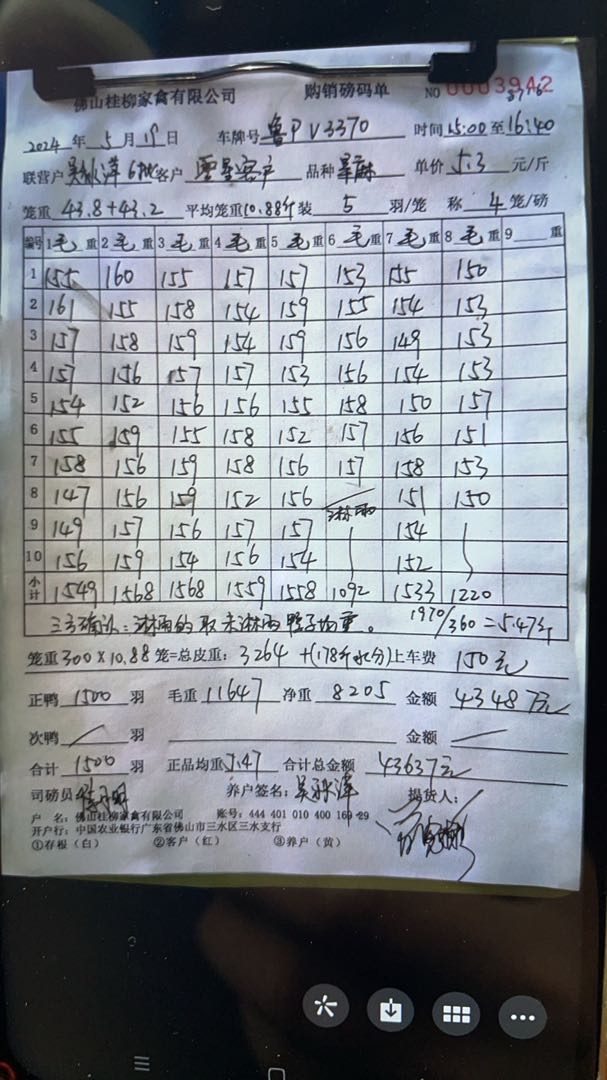 佛山桂柳家禽有限公司 购销磅码单 NO 0003942
2024 年 5 月 19 日 车牌号 鲁PV3370 时间 15:00 至 16:40
联营户 6批 客户 客户 品种 单价 5.3 元/斤
笼重 43.8+43.2 平均笼重 10.88斤 装 5 羽/笼 称 4 笼/磅
编号 1 毛 重 2 毛 重 3 毛 重 4 毛 重 5 毛 重 6 毛 重 7 毛 重 8 毛 重 9 重
1 155 160 155 157 157 153 155 150
2 161 155 158 154 159 155 154 153
3 157 158 159 154 159 156 149 153
4 157 156 157 157 153 156 154 153
5 154 152 156 156 155 158 150 157
6 155 159 155 158 152 157 156 151
7 158 156 159 158 156 157 158 153
8 147 156 159 152 156 淋雨 151 150
9 149 157 156 157 157 154
10 156 159 154 156 154 152
小计 1549 1568 1568 1559 1558 1092 1533 1220
三方确认:淋雨的取未淋雨鸭子均重。 1970/360=5.47斤
笼重 300×10.88 笼=总皮重: 3264 +(178斤水分) 上车费 150元
正鸭 1500 羽 毛重 11647 净重 8205 金额 43487元
次鸭 羽 金额
合计 1500 羽 正品均重 5.47 合计总金额 43637元
司磅员 养户签名: 提货人:
户 名: 佛山桂柳家禽有限公司 账号: 444 401 010 400 169 29
开户行: 中国农业银行广东省佛山市三水区三水支行
①存根(白) ②客户(红) ③养户(黄)